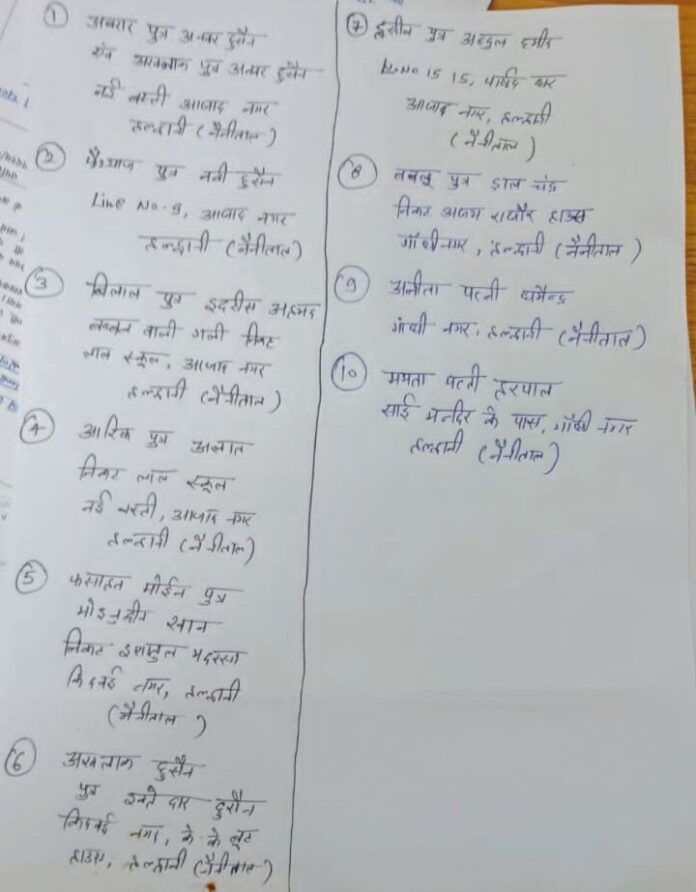 ① अबरार पुत्र अनवर हुसैन
एवं अखलाक पुत्र अनवर हुसैन
नई बस्ती आजाद नगर
हल्द्वानी (नैनीताल)
② पुत्र नबी हुसैन
Line No-9, आजाद नगर
हल्द्वानी (नैनीताल)
③ बिलाल पुत्र इदरीस अहमद
वाली गली निकट
लाल स्कूल, आजाद नगर
हल्द्वानी (नैनीताल)
④ पुत्र
निकट लाल स्कूल
नई बस्ती, आजाद नगर
हल्द्वानी (नैनीताल)
⑤ फसाहत मोईन पुत्र
मोइनुद्दीन खान
निकट मदरसा
किदवई नगर, हल्द्वानी
(नैनीताल)
⑥ अखलाक हुसैन
पुत्र हुसैन
किदवई नगर, के. के. बूट
हाउस, हल्द्वानी (नैनीताल)
⑦ पुत्र अब्दुल हमीद
15, पार्षद घर
आजाद नगर, हल्द्वानी
(नैनीताल)
⑧ बबलू पुत्र चंद्र
निकट अजय राठौर हाउस
गाँधीनगर, हल्द्वानी (नैनीताल)
⑨ अनीता पत्नी धर्मेन्द्र
गांधी नगर, हल्द्वानी (नैनीताल)
⑩ ममता पत्नी हरपाल
साई मन्दिर के पास, गाँधी नगर
हल्द्वानी (नैनीताल)